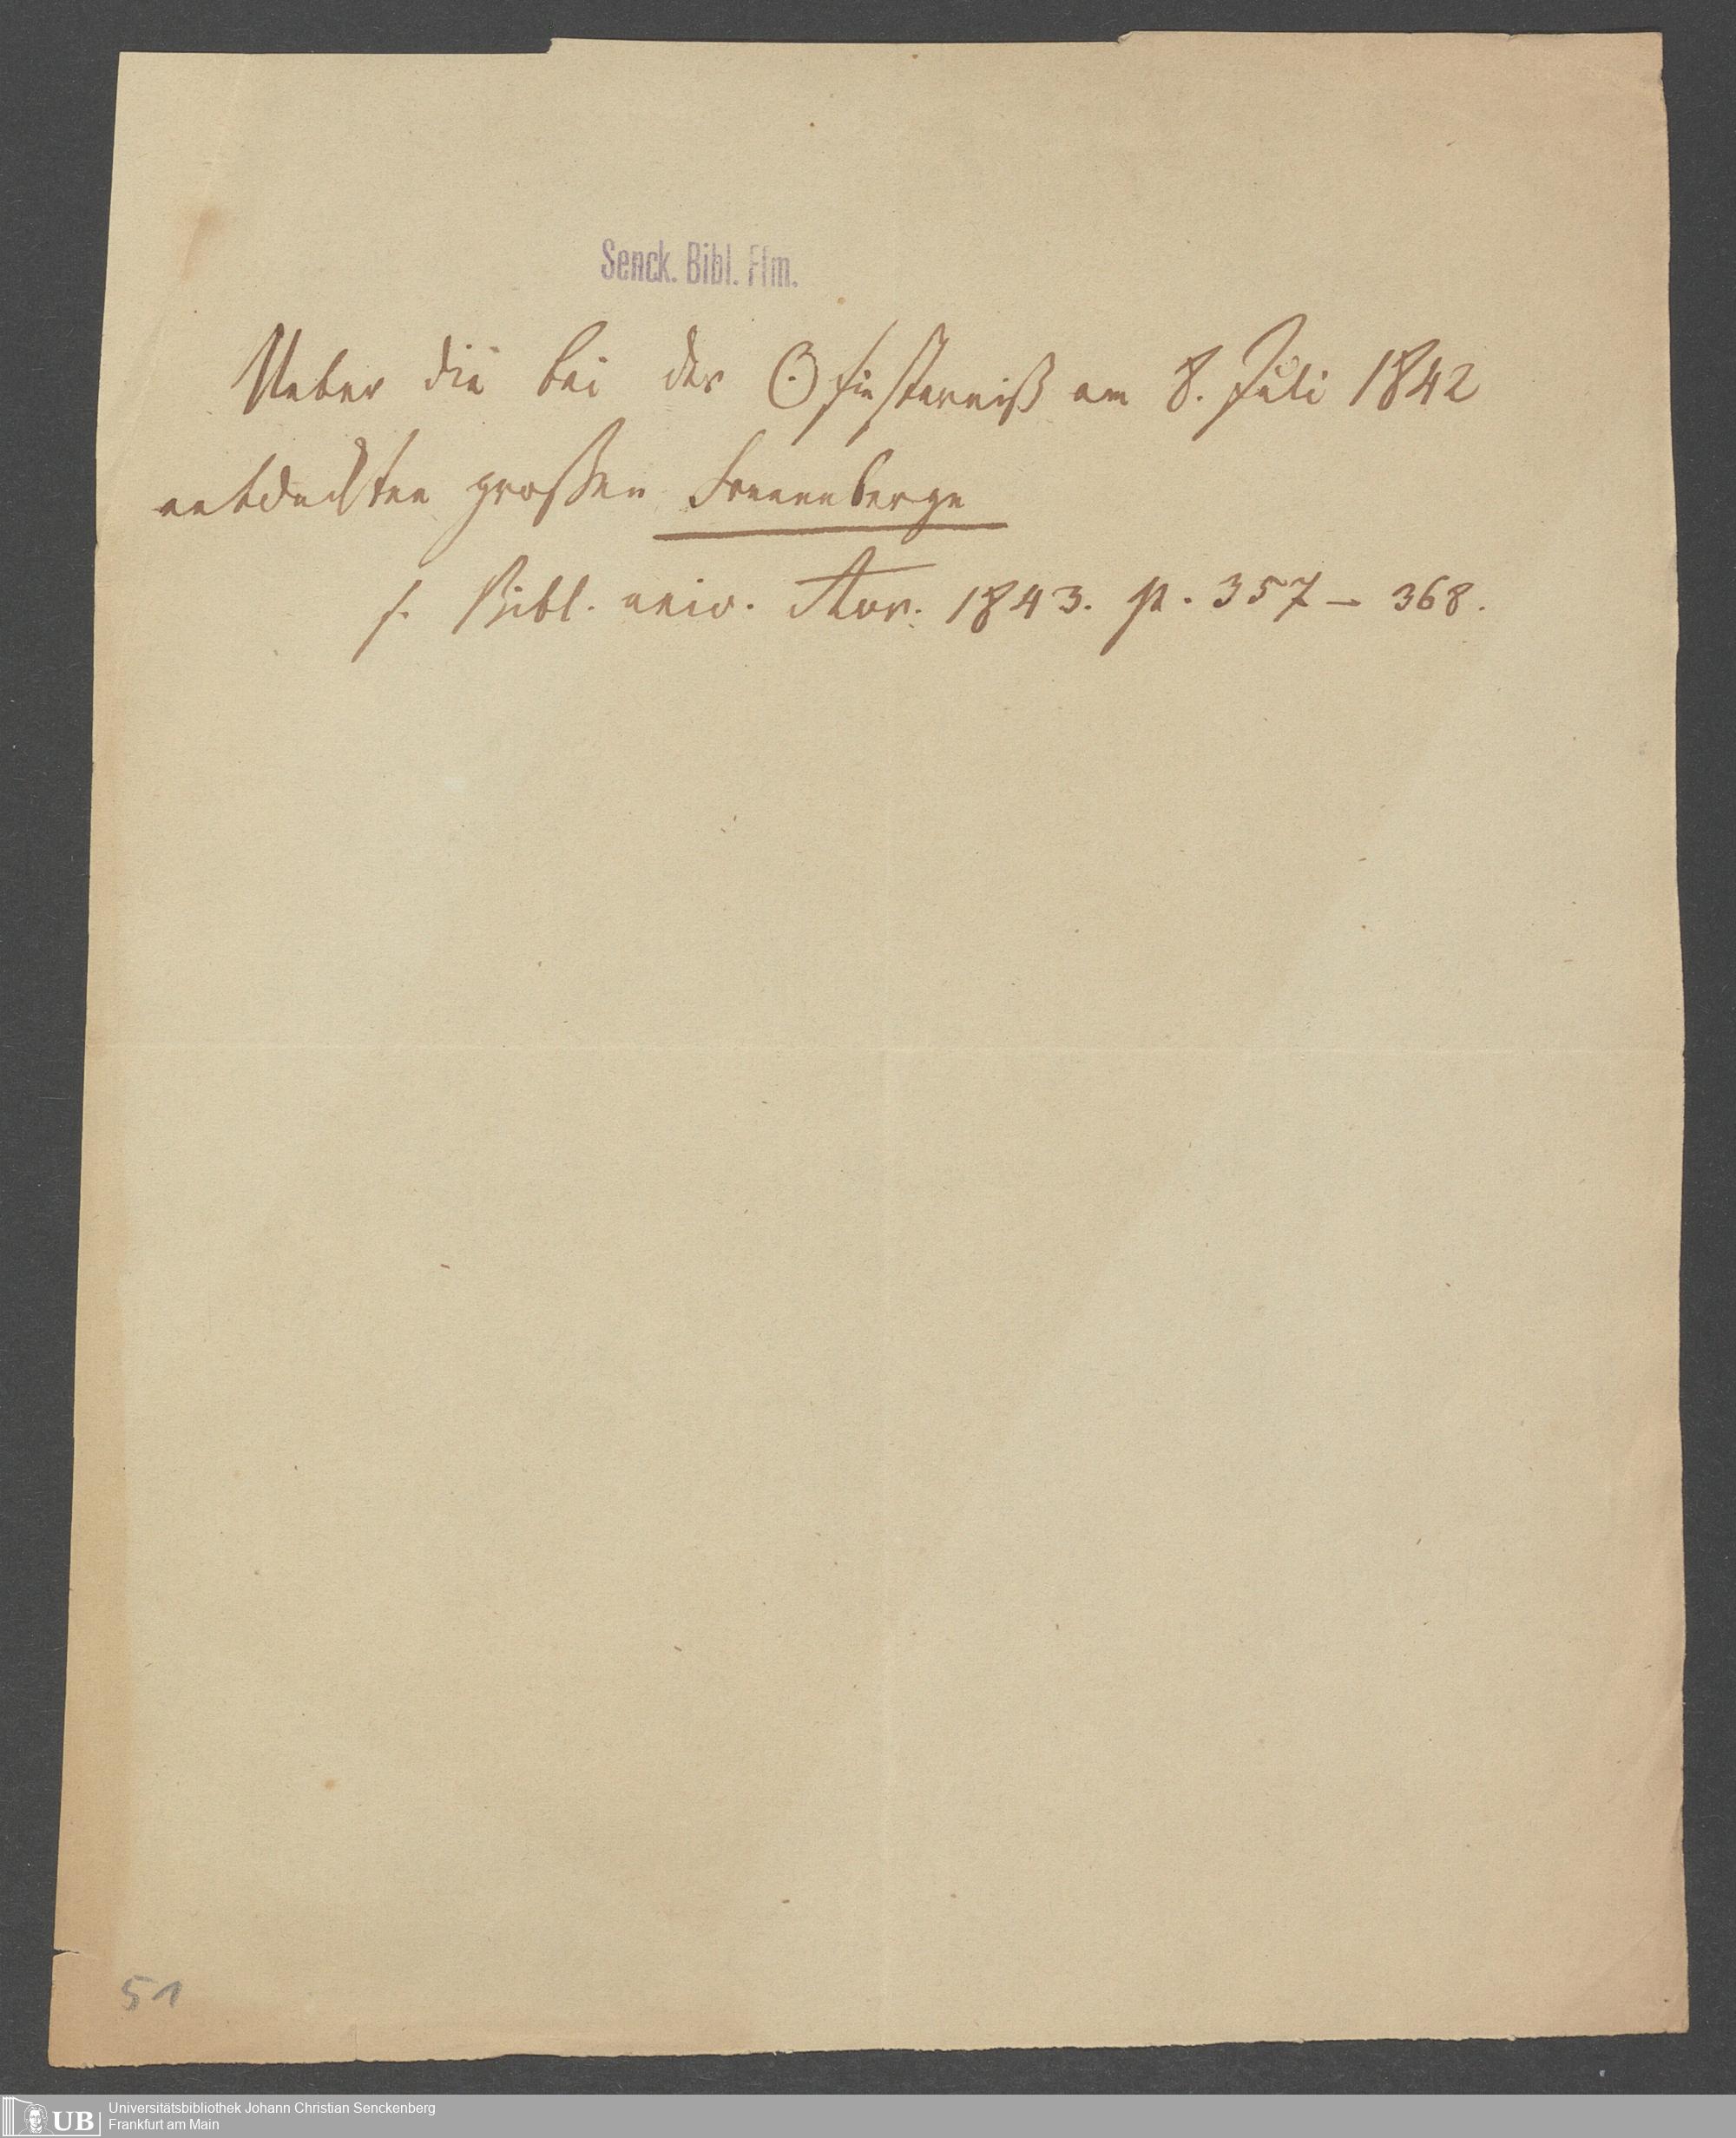 Senck. Bibl. Ffm.
Ueber die bei der ☉finsterniß am 8. Juli 1842
entdeckten großen Sonnenberge
s. Bibl. univ. Avr. 1843. p. 357 – 368.
51
UB
Universitätsbibliothek Johann Christian Senckenberg
Frankfurt am Main